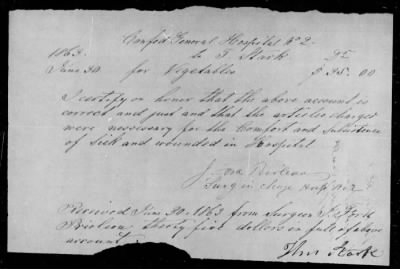 Confed General Hospital No 2
1863. to T Stark Dr
June 30 for Vegetables $ 35.00
I certify on honor that the above account is
correct and just and that the articles charged
were necessary for the Comfort and Subsistence
of Sick and wounded in Hospital
Surg in chge Hosp No 2
Received June 30. 1863 from Surgeon J. York
thirty five dollars in full of above
account
Thos Stark